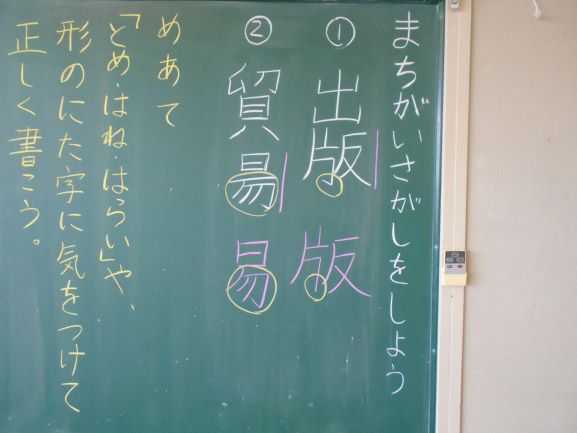 まちがいさがしをしよう
① 出版 版
② 貿易 易
めあて
「とめ・はね・はらい」や、
形のにた字に気をつけて
正しく書こう。